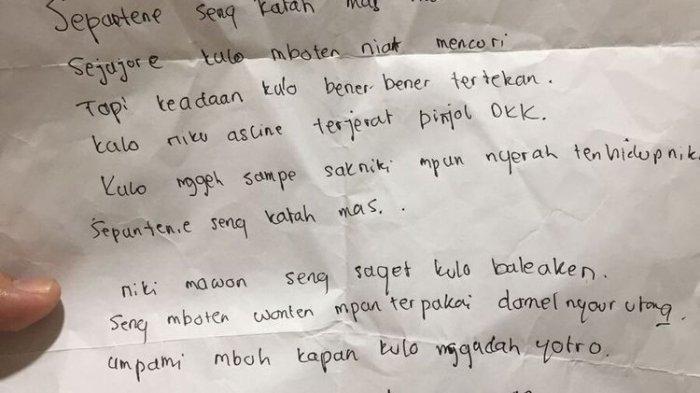 Sepuntene seng katah mas
Sejujore kulo mboten niat mencori
Tapi keadaan kulo bener-bener tertekan.
kalo niku asline terjerat pinjol OKK.
Kulo nggeh sampe sakniki mpun nyerah tenhidupniki
Sepunten.e seng katah mas. .
niki mawon seng saget kulo baleaken.
Seng mboten wonten mpun terpakai damel nyaur utang.
umpami mboh kapan kulo nggadah yotro.